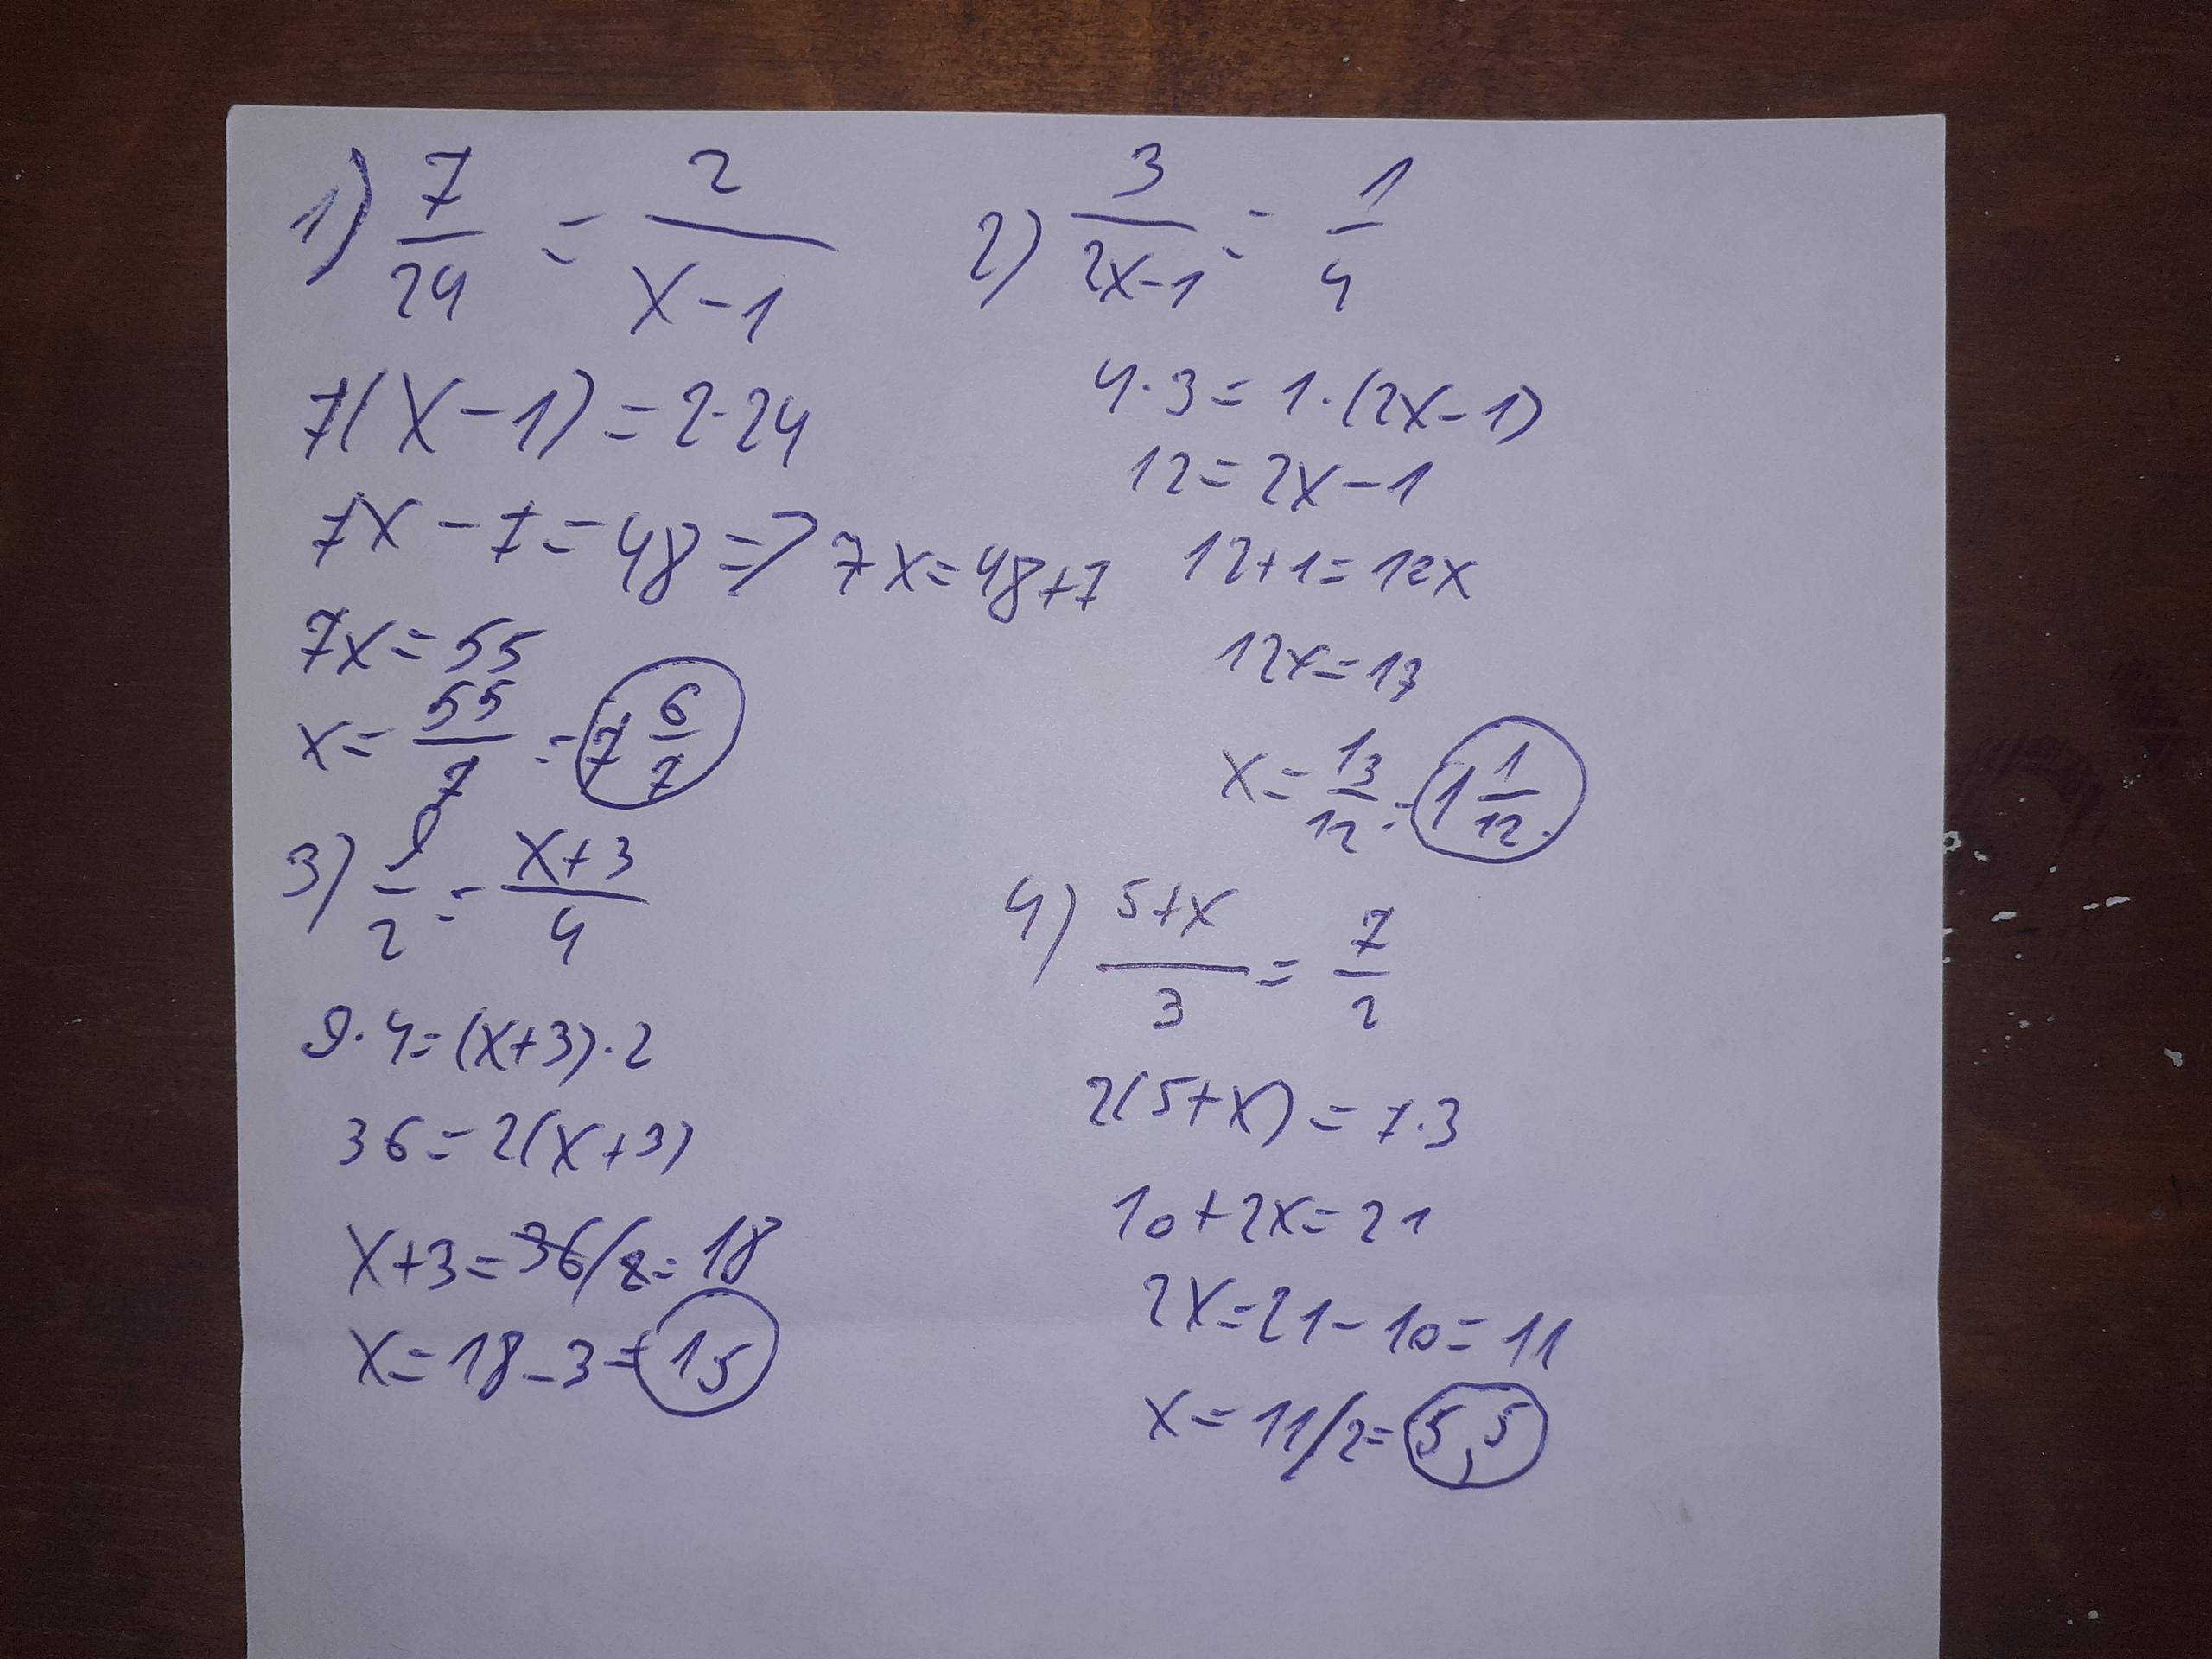 1) 7/24 = 2/(x-1)
7(x-1) = 2·24
7x - 7 = 48 => 7x = 48+7
7x = 55
x = 55/7 = 7 6/7
2) 3/(2x-1) = 1/4
4·3 = 1·(2x-1)
12 = 2x-1
12+1 = 12x
12x = 13
x = 13/12 = 1 1/12
3) 9/2 = (x+3)/4
9·4 = (x+3)·2
36 = 2(x+3)
x+3 = 36/2 = 18
x = 18-3 = 15
4) (5+x)/3 = 7/2
2(5+x) = 7·3
10+2x = 21
2x = 21-10 = 11
x = 11/2 = 5,5